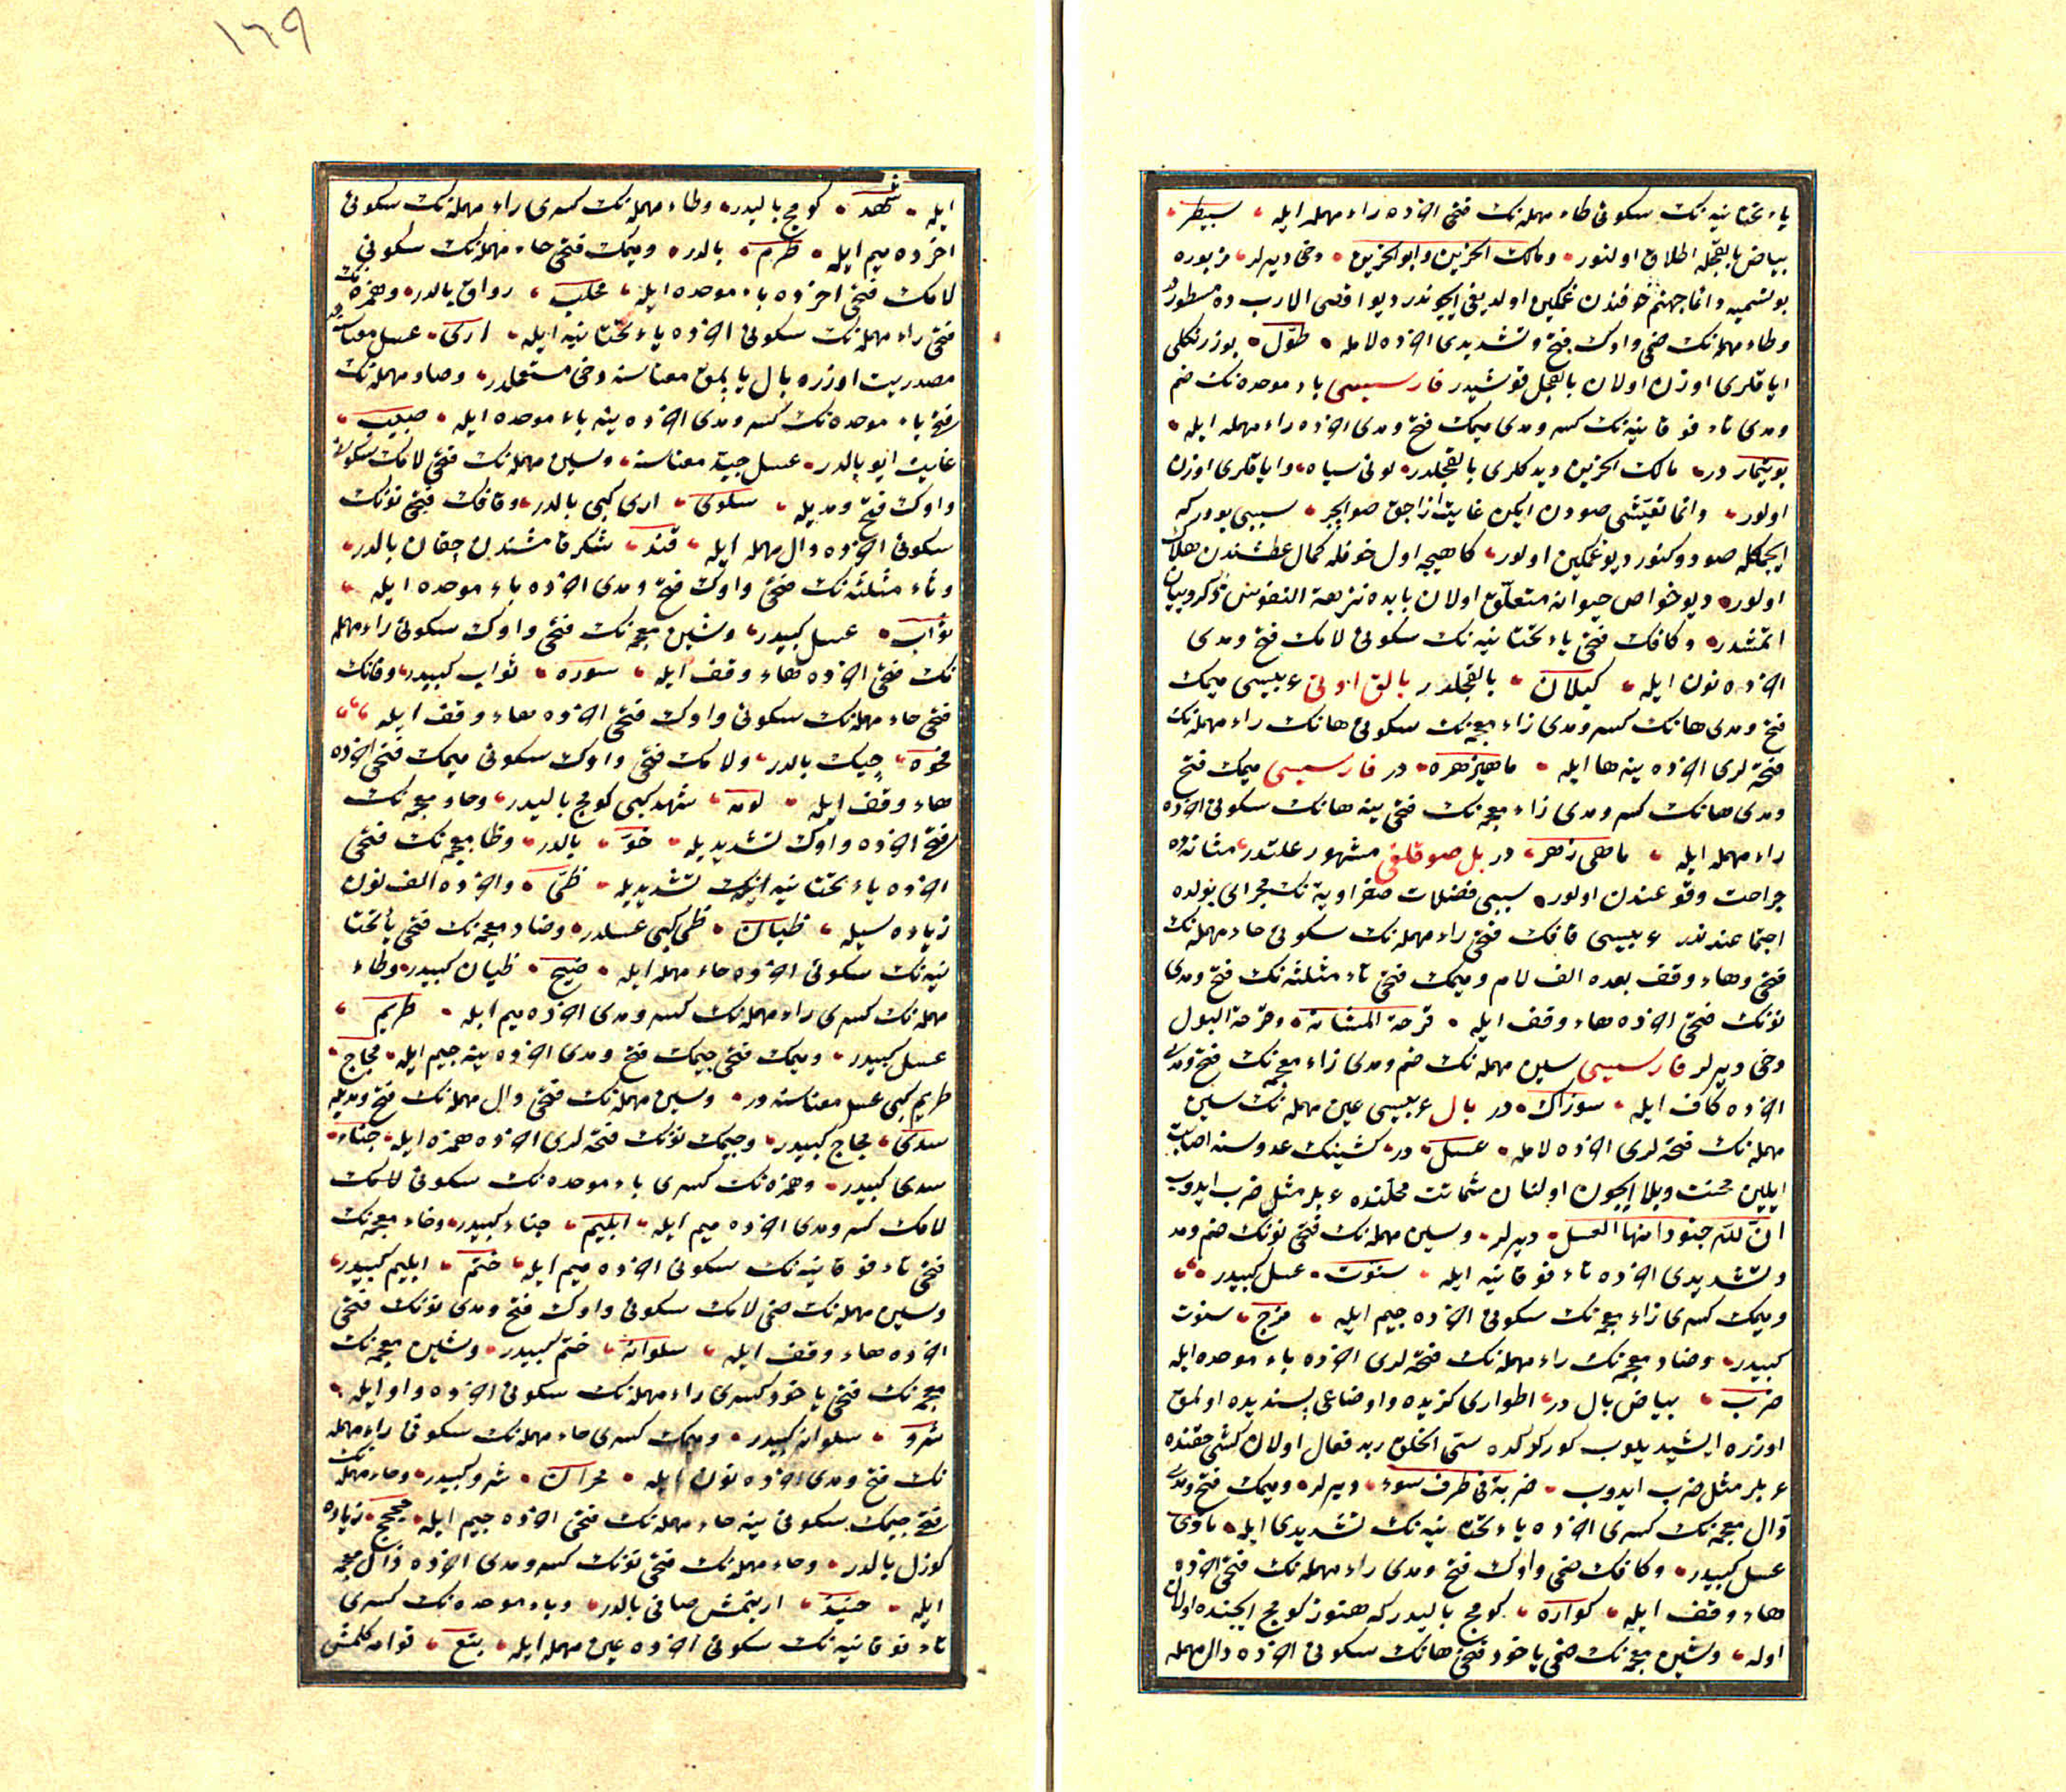 یاء تحتانیه نك سكونی طاء مهمله نك فتحی اخرده راء مهمله ایله سبیطر
بیاض بالقجله اطلاق اولنور ومالك الحزین وابو الحزین دخی دیرلر مزبوره
بو تسمیه دائما جهنم خوفندن غمكین اولدیغی ایچوندر دیو اقصی الارب ده مسطوردر
وطاء مهمله نك ضمی واوك فتح وتشدیدی اخرده لامله طوّل بوز رنكلی
ایاقلری اوزن اولان بالقجل قوشیدر فارسیسی باء موحده نك ضم
ومدی تاء فوقانیه نك كسر ومدی میمك فتح ومدی اخرده راء مهمله ایله
بوتیمار در مالك الحزین دیدكلری بالقجلدر لونی سیاه وایاقلری اوزن
اولور دائما تعیّشی صودن ایكن غایت از اجق صو ایچر سببی بودركه
ایچمكله صو دوكنور دیو غمكین اولور كاهیجه اول خوفله كمال عطشندن هلاك
اولور دیو خواص حیوانه متعلّق اولان بابده نزهة النفوس ذكر وبیان
اتمشدر وكافك فتحی یاء تحتانیه نك سكونی لامك فتح ومدی
اخرده نون ایله كیلان بالقجلدر بالق اوتی عربیسی میمك
فتح ومدی هانك كسر ومدی زاء معجمه نك سكونی هانك راء مهمله نك
فتحه لری اخرده ینه ها ایله ماهیزهره در فارسیسی میمك فتح
ومدی هانك كسر ومدی زاء معجمه نك فتحی ینه هانك سكونی اخرده
راء مهمله ایله ماهی زهر در بل صوقلغی مشهور علتدر مثانه ده
جراحت وقوعندن اولور سببی فضلات صفراویة نك مجرای بولده
اجتماعندندر عربیسی قافك فتحی راء مهمله نك سكونی حاء مهمله نك
فتحی وهاء وقف بعده الف لام ومیمك فتحی ثاء مثلثه نك فتح ومدی
نونك فتحی اخرده هاء وقف ایله قرحة المثانه وقرحة البول
دخی دیرلر فارسیسی سین مهمله نك ضم ومدی زاء معجمه نك فتح ومدی
اخرده كاف ایله سوزاك در بال عربیسی عین مهمله نك سین
مهمله نك فتحه لری اخرده لامله عسل در كشینك عدوسنه اصابت
ایلین محنت وبلا ایچون اولنان شماتت محلّنده عربلر مثل ضرب ایدوب
انّ للّه جنودا منها العسل دیرلر وسین مهمله نك فتحی نونك ضم ومد
وتشدیدی اخرده تاء فوقانیه ایله سنوت عسل كبیدر
ومیمك كسری زاء معجمه نك سكونی اخرده جیم ایله مزج سنوت
كبیدر وضاد معجمه نك راء مهمله نك فتحه لری اخرده باء موحده ایله
ضرب بیاض بال در اطواری كزیده واوضاعی پسندیده اولمق
اوزره ایشیدیلوب كوركولكده سیّئ الخلق بد فعال اولان كشی حقنده
عربلر مثل ضرب ایدوب ضربة فی طرف سوء دیرلر ومیمك فتح ومدی
ذال معجمه نك كسری اخرده یاء تحتانیه نك تشدیدی ایله ماذیّ
عسل كبیدر وكافك ضمی واوك فتح ومدی راء مهمله نك فتحی اخرده
هاء وقف ایله كواره كومج بالیدركه هنوز كومج ایچنده اولان
اوله وشین معجمه نك ضمی یاخود فتحی هانك سكونی اخرده دال مهمله
١٦٩
ایله شهد كومج بالیدر وطاء مهمله نك كسری راء مهمله نك سكونی
اخرده میم ایله طرم بالدر ومیمك فتحی حاء مهمله نك سكونی
لامك فتحی اخرده باء موحده ایله محلب رواق بالدر وهمزه نك
فتحی راء مهمله نك سكونی اخرده یاء تحتانیه ایله اری عسل معناسنه در
مصدریت اوزره بال یاپلمق معناسنه دخی مستعملدر وصاد مهمله نك
فتحی باء موحده نك كسر ومدی اخرده ینه باء موحده ایله صبیب
غایت ایو بالدر عسل جیّد معناسنه وسین مهمله نك فتحی لامك سكونی
واوك فتح ومدیله سلوی اری كبی بالدر وقافك فتحی نونك
سكونی اخرده دال مهمله ایله قند شكر قامشندن چقان بالدر
وثاء مثلثه نك ضمی واوك فتح ومدی اخرده باء موحده ایله
ثواب عسل كبیدر وشین معجمه نك فتحی واوك سكونی راء مهمله
نك فتحی اخرده هاء وقف ایله شوره ثواب كبیدر وقافك
فتحی حاء مهمله نك سكونی واوك فتحی اخرده هاء وقف ایله
قحوه چیك بالدر ولامك فتحی واوك سكونی میمك فتحی اخرده
هاء وقف ایله لومه شهد كبی كومج بالیدر وخاء معجمه نك
فتحی اخرده واوك تشدیدیله خوّ بالدر وظا معجمه نك فتحی
اخرده یاء تحتانیه نك تشدیدیله ظیّ واخرده الف نون
زیاده سیله ظیان ظی كبی عسلدر وضاد معجمه نك فتحی یاء تحتا
نیه نك سكونی اخرده حاء مهمله ایله ضیح ظیان كبیدر وطاء
مهمله نك كسری راء مهمله نك كسر ومدی اخرده میم ایله طریم
عسل كبیدر ومیمك فتحی جیمك فتح ومدی اخرده ینه جیم ایله مجاج
طریم كبی عسل معناسنه در وسین مهمله نك فتحی دال مهمله نك فتح ومدیله
سدی مجاج كبیدر وجیمك نونك فتحه لری اخرده همزه ایله جناء
سدی كبیدر وهمزه نك كسری باء موحده نك سكونی لامك
لامك كسر ومدی اخرده میم ایله ابلیم جناء كبیدر وخاء معجمه نك
فتحی تاء فوقانیه نك سكونی اخرده میم ایله ختم ابلیم كبیدر
وسین مهمله نك ضمی لامك سكونی واوك فتح ومدی نونك فتحی
اخرده هاء وقف ایله سلوانه ختم كبیدر وشین معجمه نك
معجمه نك فتحی یاخود كسری راء مهمله نك سكونی اخرده واو ایله
شرو سلوانه كبیدر ومیمك كسری حاء مهمله نك سكونی راء مهمله
نك فتح ومدی اخرده نون ایله محران شرو كبیدر وحاء مهمله نك
فتحی جیمك سكونی ینه حاء مهمله نك فتحی اخرده جیم ایله زیاده
كوزل بالدر وحاء مهمله نك فتحی نونك كسر ومدی اخرده ذال معجمه
ایله حنیذ ارینمش صافی بالدر وباء موحده نك كسری
تاء فوقانیه نك سكونی اخرده عین مهمله ایله بتع قوامه كلمش